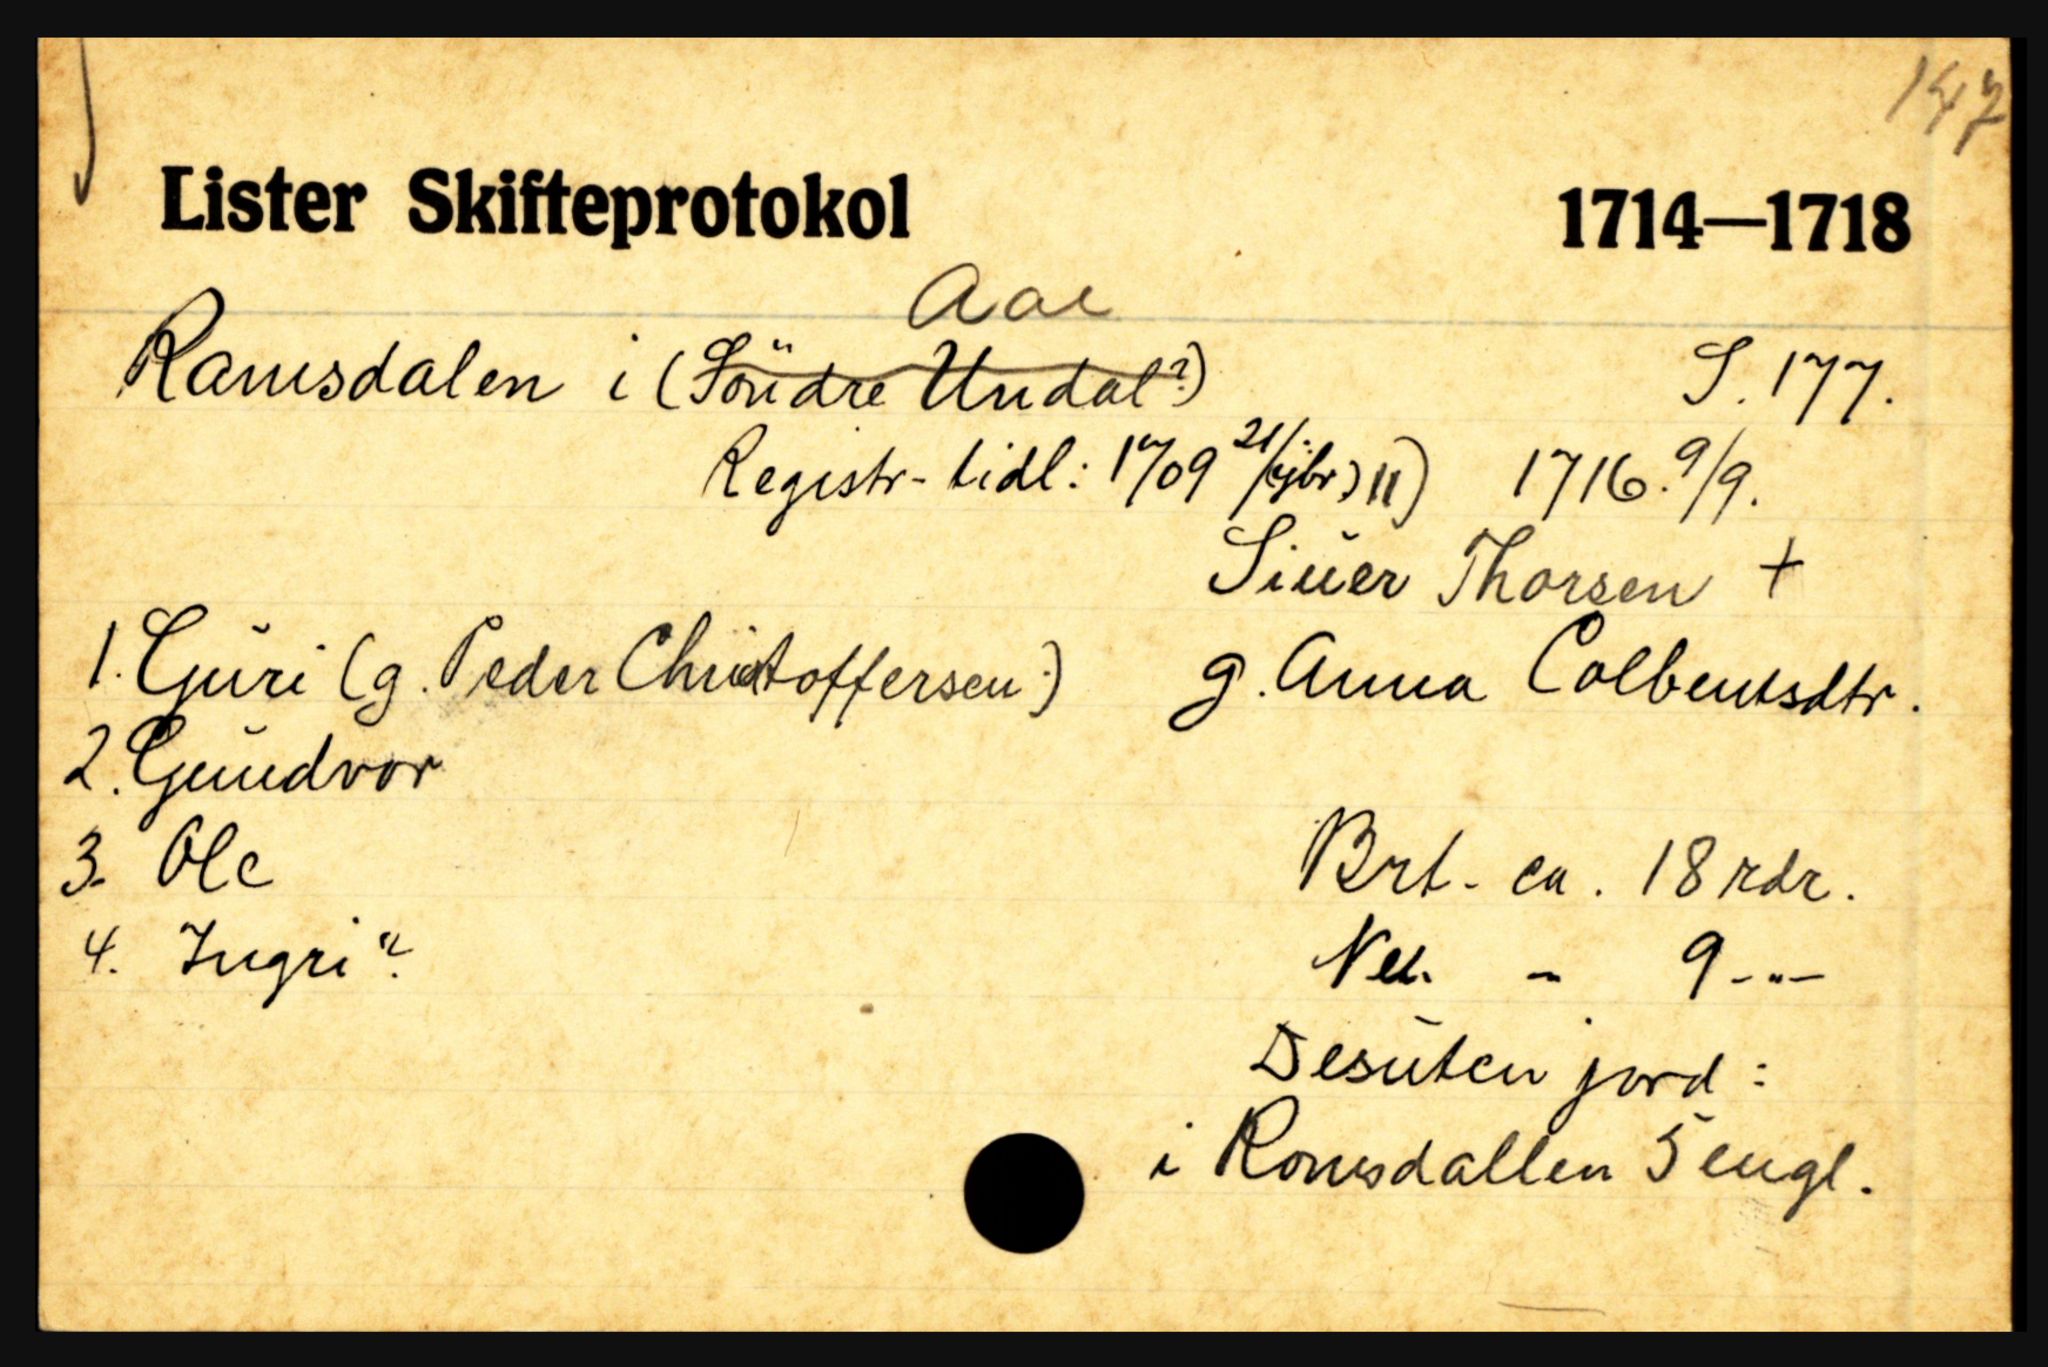 147
Lister Skifteprotokol 1714—1718
Aae
Ramsdalen i (Söndre Undal?) S. 177.
Registr-tidl: 1709 21/ 11) 1716. 9/9.
Siŭer Thorsen +
1. Gŭri (g. Peder Christoffersen) g. Anna Colbentsdtr.
2. Gŭndvor
3. Ole Brt. ca. 18 rdr.
4. Ingri? Net. - 9 -"-
Desŭten jord:
i Romsdallen 5 engl.